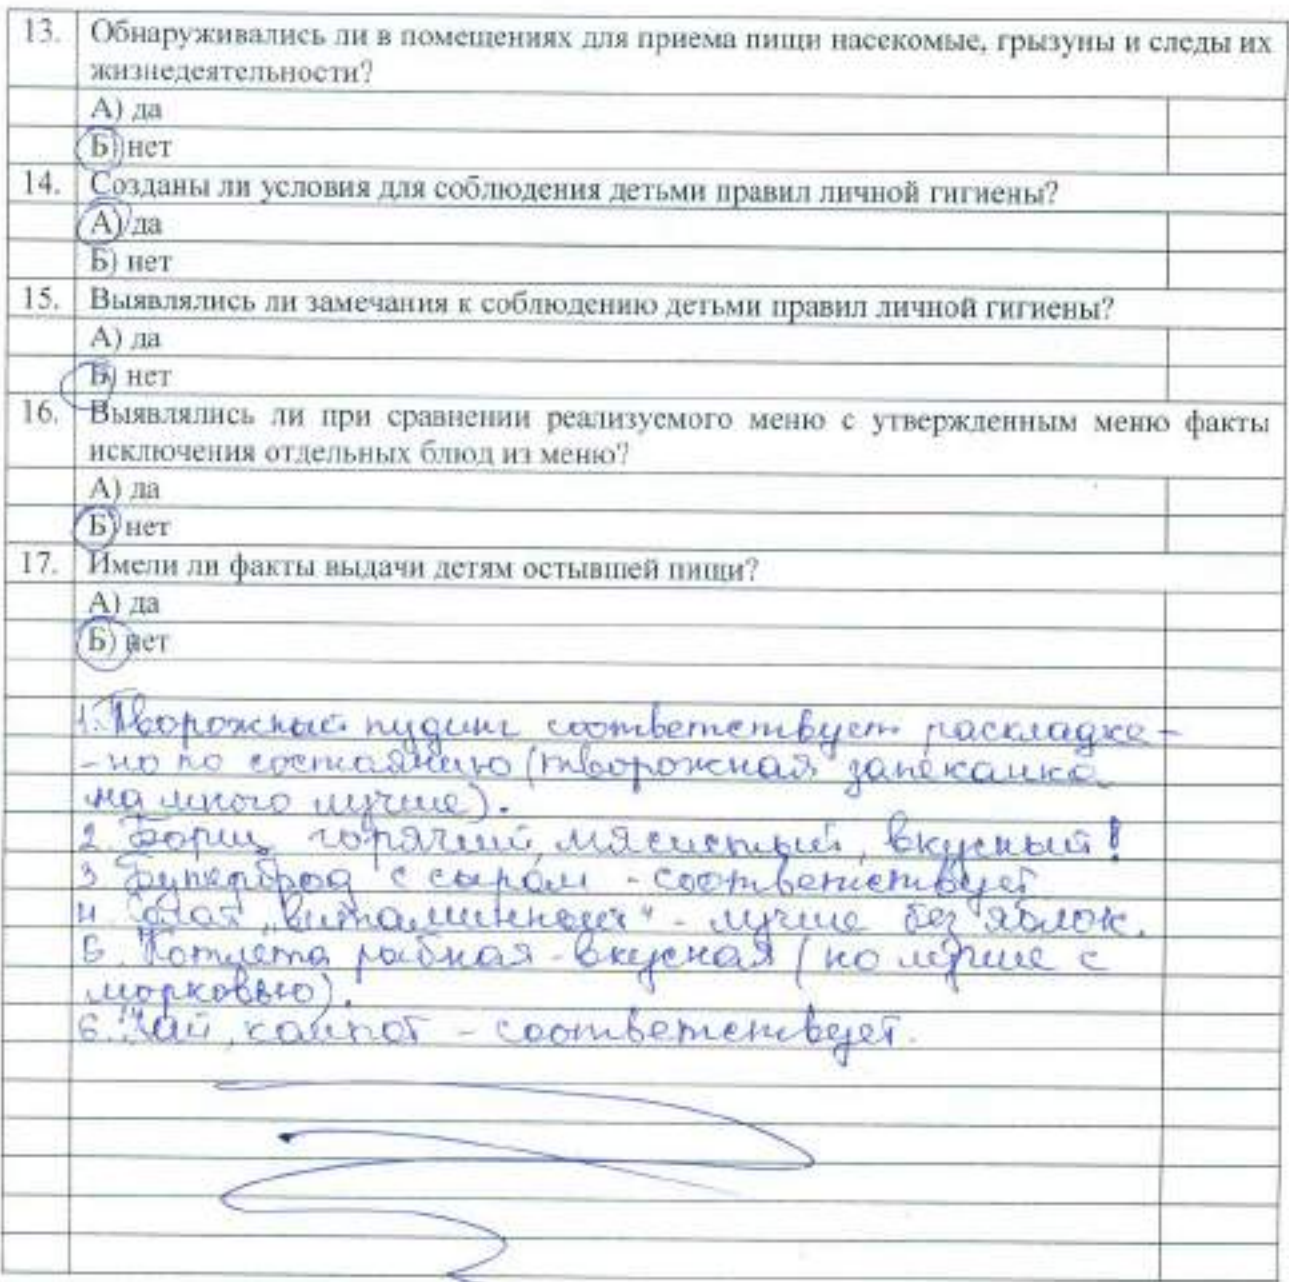 13. Обнаруживались ли в помещениях для приема пищи насекомые, грызуны и следы их
жизнедеятельности?
А) да
Б) нет
14. Созданы ли условия для соблюдения детьми правил личной гигиены?
А) да
Б) нет
15. Выявлялись ли замечания к соблюдению детьми правил личной гигиены?
А) да
Б) нет
16. Выявлялись ли при сравнении реализуемого меню с утвержденным меню факты
исключения отдельных блюд из меню?
А) да
Б) нет
17. Имели ли факты выдачи детям остывшей пищи?
А) да
Б) нет
1. Творожный пудинг соответствует раскладке -
- но по состоянию (творожная запеканка
на много лучше).
2. Борщ горячий, мясистый, вкусный!
3 Бутерброд с сыром - соответствует
4. Салат „витаминный" - лучше без яблок.
5. Котлета рыбная - вкусная (но лучше с
морковью).
6. Чай, компот - соответствует.